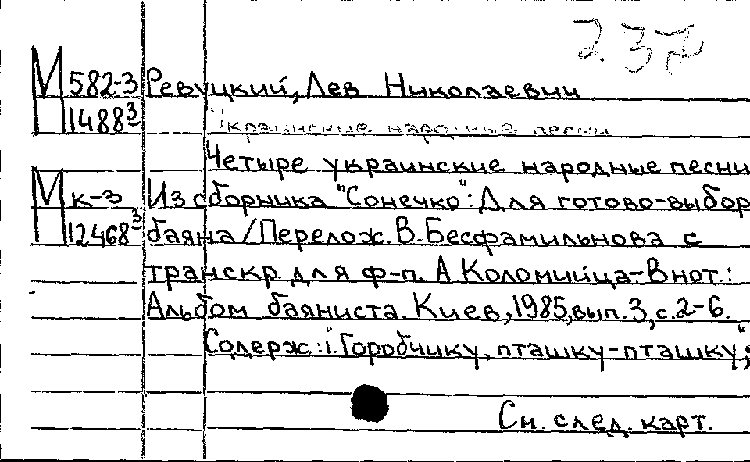 2.37
М 582-3 Ревуцкий, Лев Николаевич
П 1488³ Украинские народные песни
Четыре украинские народные песни
М к-3 Из сборника "Сонечко": Для готово-выбор
П 12468³ баяна/Перелож. В. Бесфамильнова с
транскр. для ф-п. А Коломийца-В нот.:
Альбом баяниста. Киев, 1985, вып. 3, с. 2-6.
Содерж: 1. Горобчику, пташку-пташку",
См. след. карт.